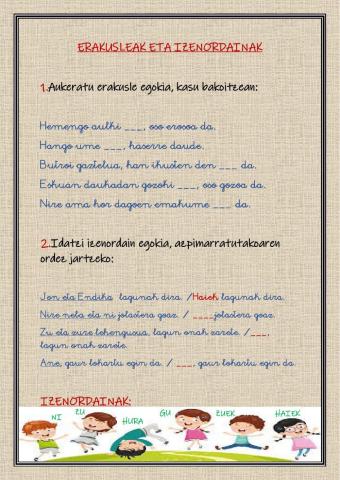 ERAKUSLEAK ETA IZENORDAINAK
1.Aukeratu erakusle egokia, kasu bakoitzean:
Hemengo aulki ___, oso erosoa da.
Hango ume ___, haserre daude.
Butroi gaztelua, han ikusten den ___ da.
Eskuan daukadan gozoki ___, oso gozoa da.
Nire ama hor dagoen emakume ___ da.
2.Idatzi izenordain egokia, azpimarratutakoaren
ordez jartzeko:
Jon eta Endika lagunak dira. /Haiek lagunak dira.
Nire neba eta ni jolastera goaz. / ____jolastera goaz.
Zu eta zure lehengusua, lagun onak zarete. /___,
lagun onak zarete.
Ane, gaur lokartu egin da. / ___, gaur lokartu egin da.
IZENORDAINAK:
NI ZU HURA GU ZUEK HAIEK